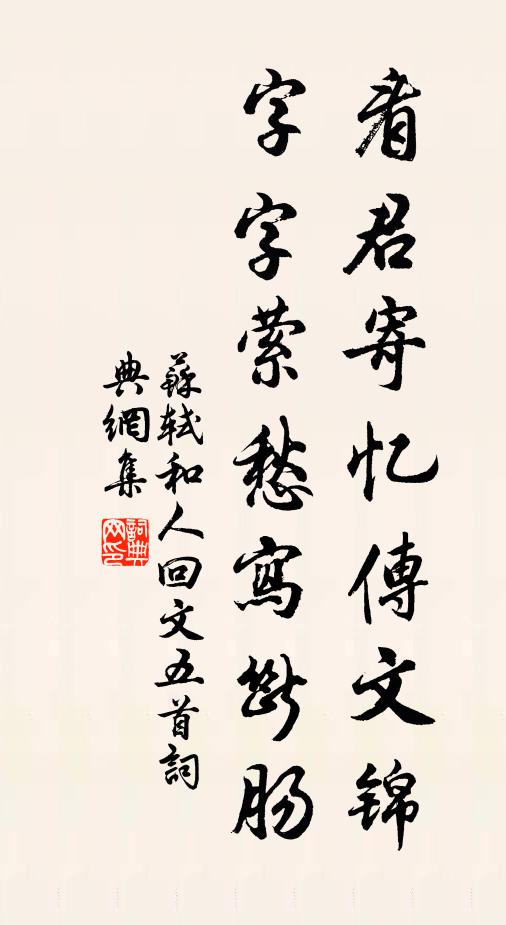 看君寄忆傳文錦
字字萦愁寫斷肠
蘇軾和人回文五首詞
典網集
詞典网印